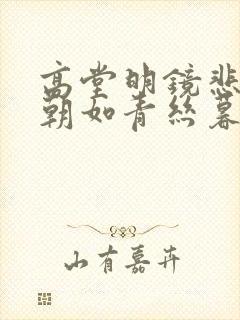 高堂明鏡悲
朝如青丝暮
山有嘉卉